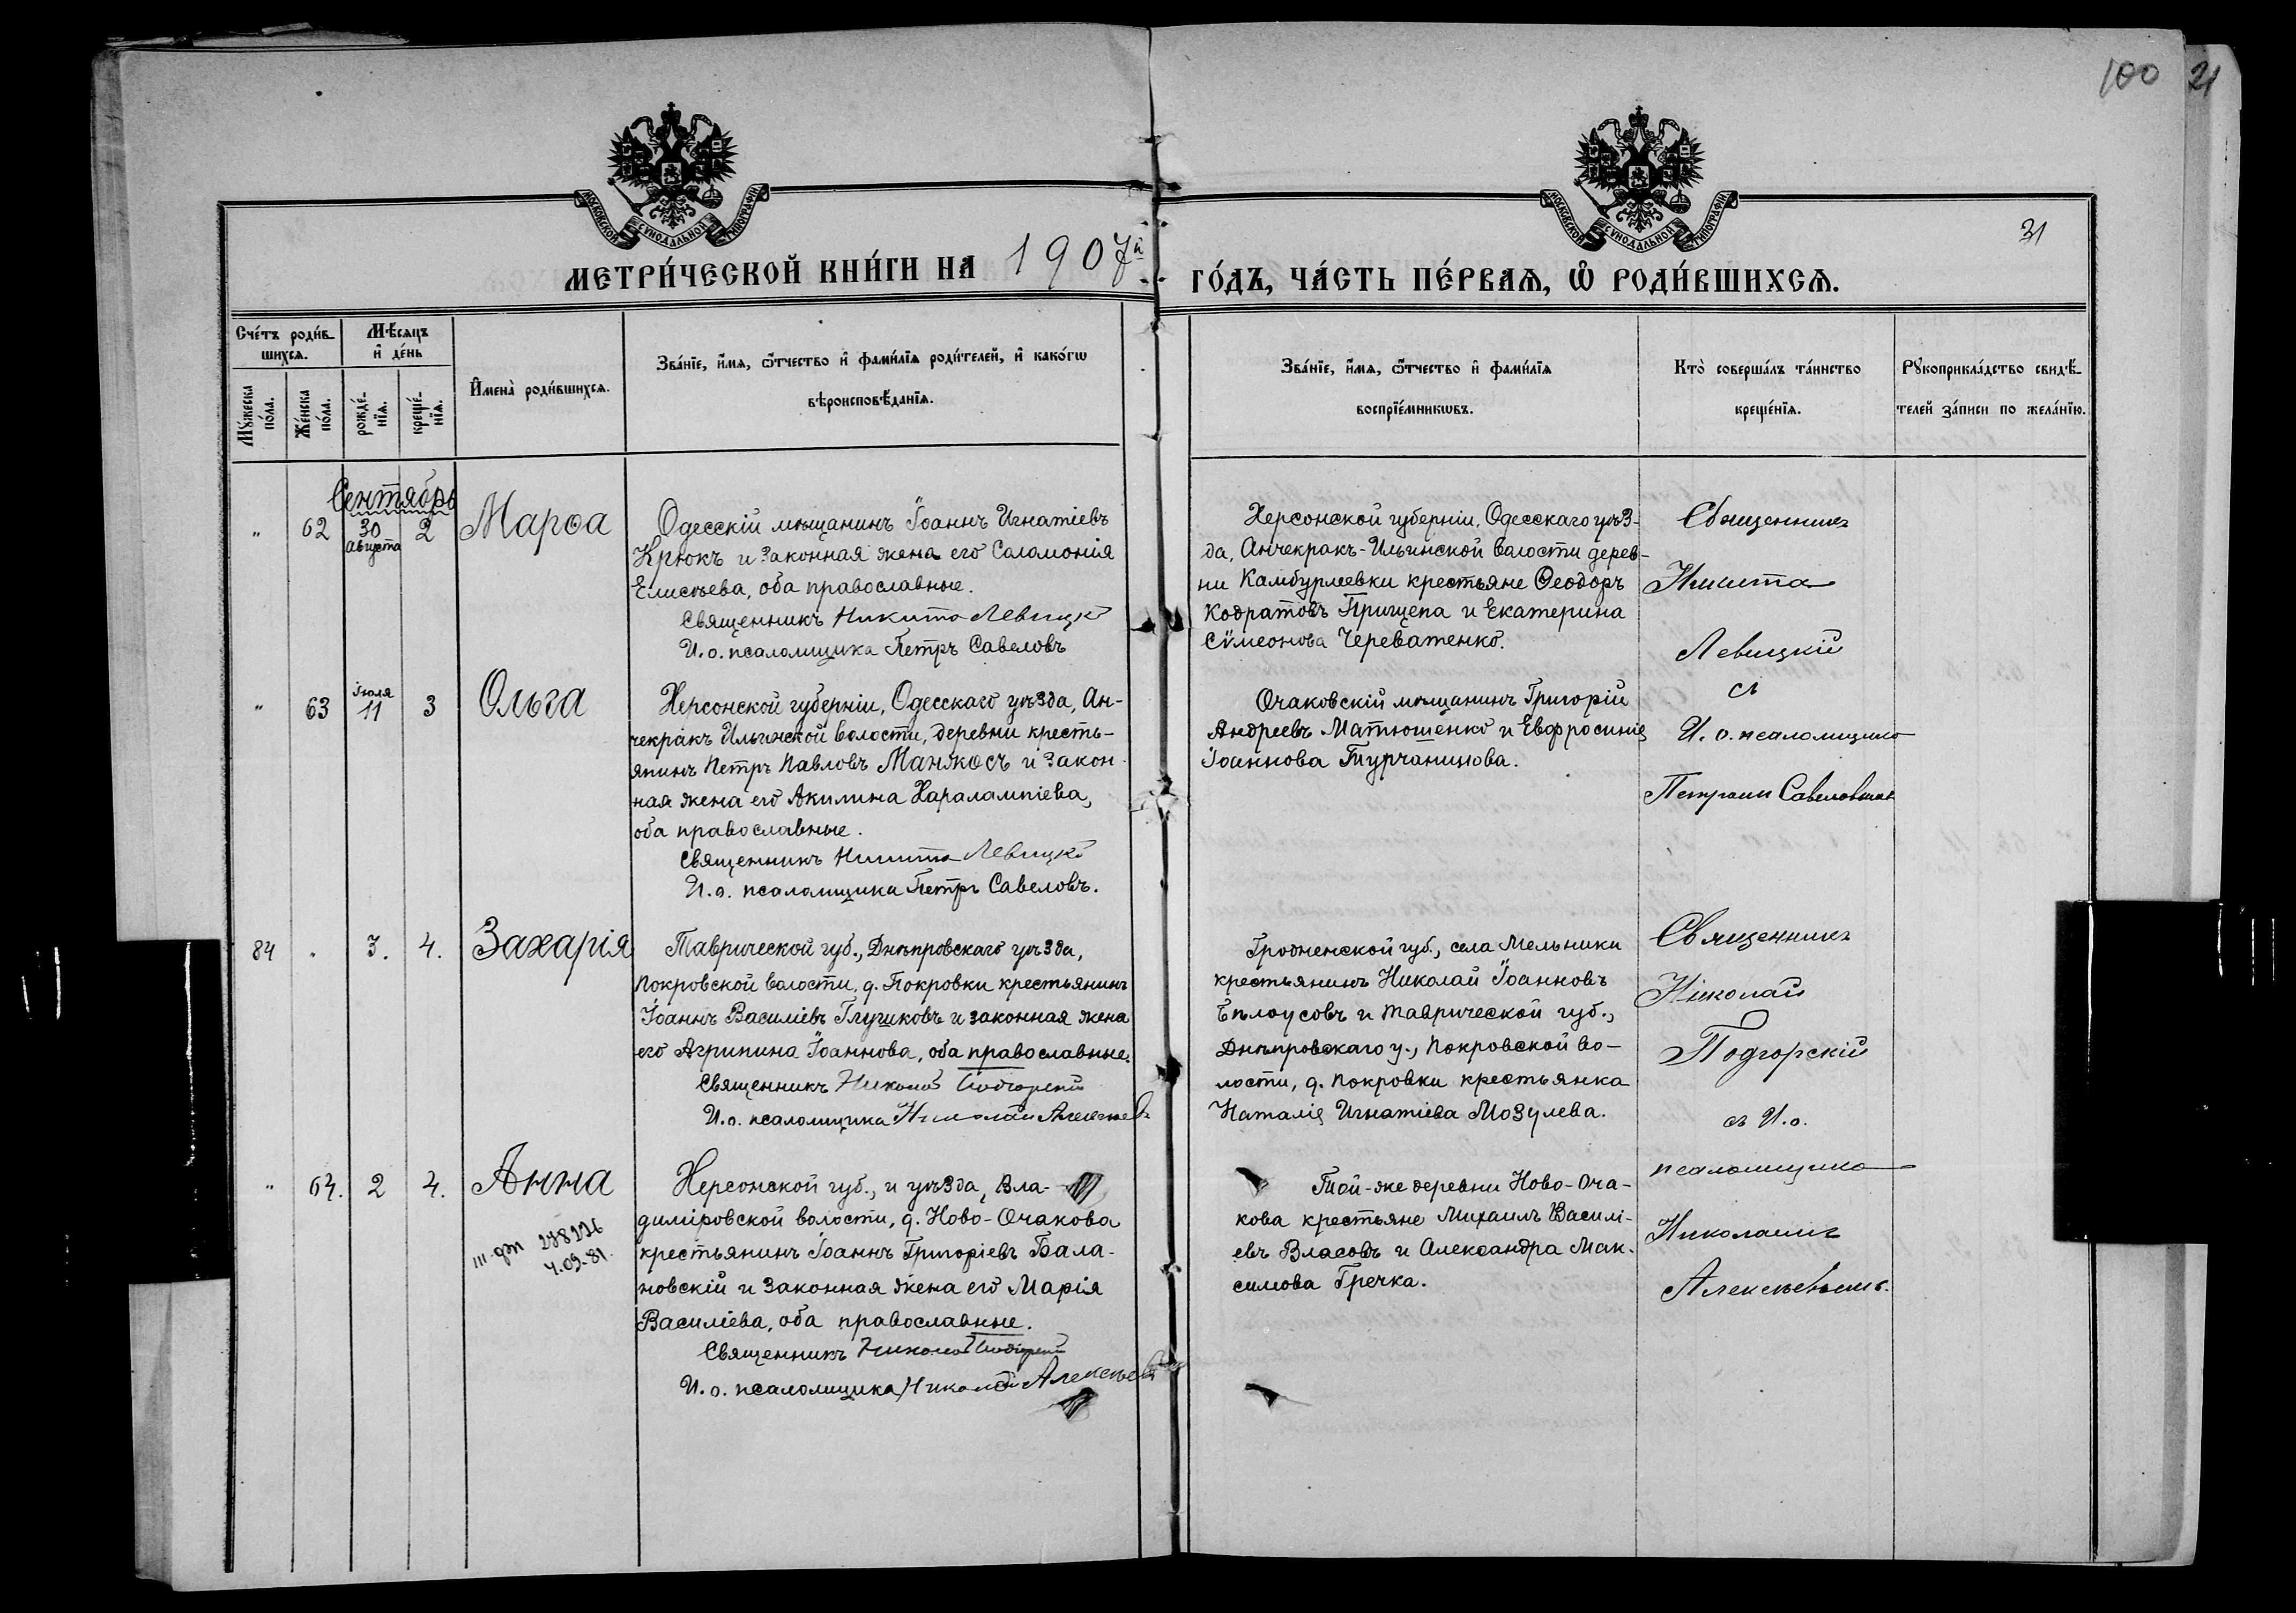 100 21
МОСКОВСКОЙ СѴНОДАЛЬНОЙ ТИПОГРАФІИ
МОСКОВСКОЙ СѴНОДАЛЬНОЙ ТИПОГРАФІИ
31
МЕТРИ́ЧЕСКОЙ КНИ́ГИ НА 1907й ГО́ДЪ, ЧА́СТЬ ПЕ́РВАѦ, Ѿ РОДИ́ВШИХСѦ.
Сче́тъ роди́в-
шихсѧ.
Мꙋ́жеска
по́ла.
Же́нска
по́ла.
Мѣ́сяцъ
и҆ де́нь
рожде́-
нїѧ.
креще́-
нїѧ.
И҆мена̀ роди́вшихсѧ.
Зва́нїе, и҆́мѧ, ѻ҆́тчество и҆ фами́лїѧ роди́телей, и҆ како́гѡ
вѣроисповѣ́данїѧ.
Зва́нїе, и҆́мѧ, ѻ҆́тчество и҆ фами́лїѧ
воспрїе́мникѡвъ.
Кто̀ соверша́лъ та́инство
креще́нїѧ.
Рꙋкоприкла́дство свидѣ́-
телей за́писи по жела́нїю.
Сентябрь
" 62 30 августа 2 Марѳа
Одесскій мѣщанинъ Іоаннъ Игнатіевъ
Крюкъ и законная жена его Саломонія
Елисѣева, оба православные.
Священникъ Никита Левицкій
И. о. псаломщика Петръ Савеловъ
Херсонской губерніи, Одесскаго уѣз-
да, Анчекракъ-Ильинской волости дерев-
ни Камбурлеевки крестьяне Ѳеодоръ
Кодратовъ Прищепа и Екатерина
Сѷмеонова Череватенко.
Священникъ
Никита
Левицкій
съ
И. о. псаломщика
Петромъ Савеловымъ
" 63 Іюля 11 3 Ольга
Херсонской губерніи, Одесскаго уѣзда, Ан-
чекракъ Ильинской волости, деревни кресть-
янинъ Петръ Павловъ Манжосъ и закон-
ная жена его Акилина Харалампіева,
оба православные.
Священникъ Никита Левицкій
И. о. псаломщика Петръ Савеловъ.
Очаковскій мѣщанинъ Григорій
Андреевъ Матюшенко и Евфросинія
Іоаннова Турчанинова.
84 " 3. 4. Захарія
Таврической губ., Днѣпровскаго уѣзда,
Покровской волости, д. Покровки крестьянинъ
Іоаннъ Василіевъ Глушковъ и законная жена
его Агрипина Іоаннова, оба православные.
Священникъ Николай Подгорскій
И. о. псаломщика Николай Алексѣевъ
Гродненской губ., села Мельники
крестьянинъ Николай Іоанновъ
Бѣлоусовъ и Таврической губ.,
Днѣпровскаго у., Покровской во-
лости, д. Покровки крестьянка
Наталія Игнатіева Мозулева.
Священникъ
Николай
Подгорскій
съ И. о.
псаломщика
Николаемъ
Алексѣевымъ.
" 64. 2 4. Анна
278226
4.09.81.
Херсонской губ., и уѣзда, Вла-
диміровской волости, д. Ново-Очакова
крестьянинъ Іоаннъ Григоріевъ Бала-
новскій и законная жена его Марія
Василіева, оба православные.
Священникъ Николай Подгорскій
И. о. псаломщика Николай Алексѣевъ
Той-же деревни Ново-Оча-
кова крестьяне Михаилъ Василі-
евъ Власовъ и Александра Мак-
симова Гречка.